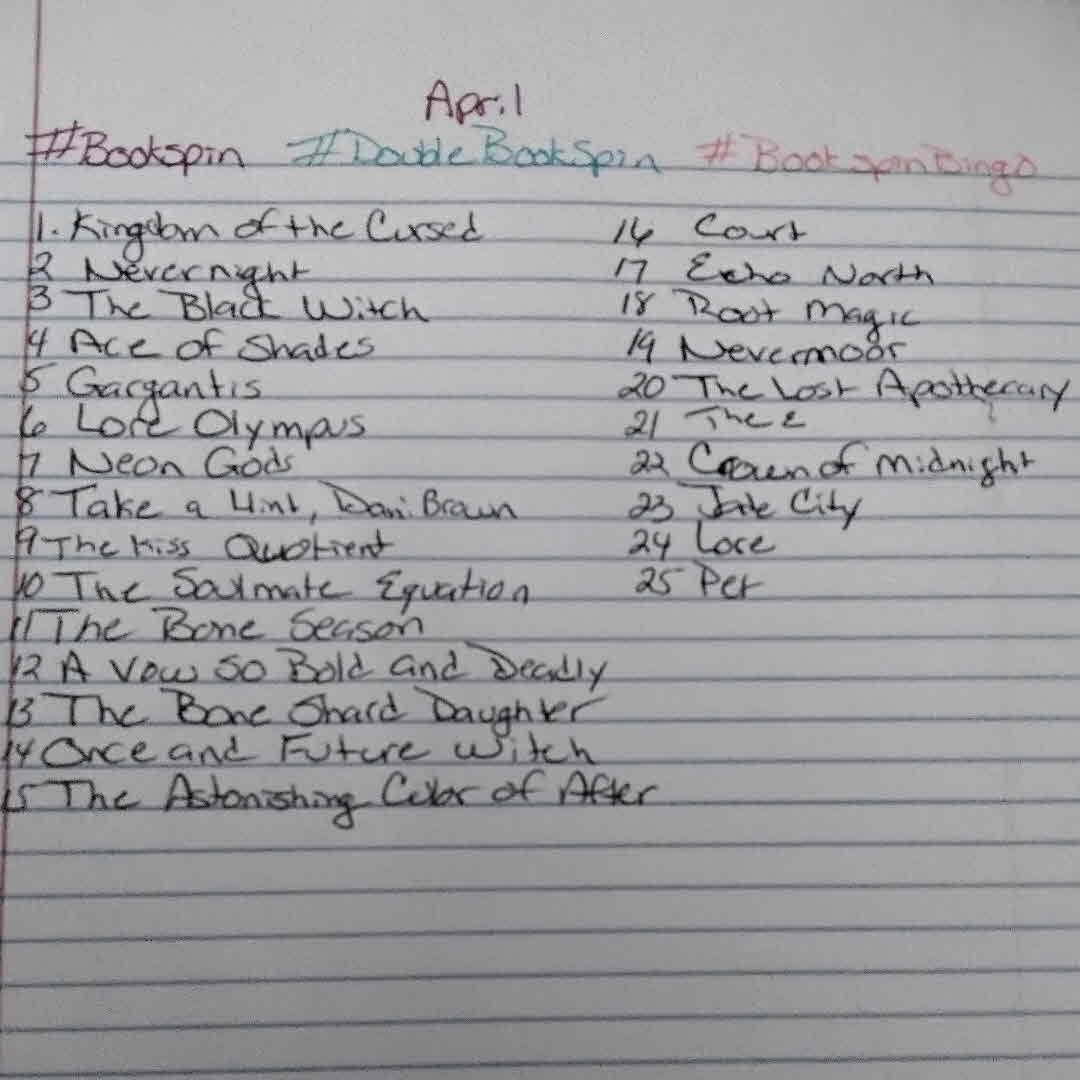 April
#Bookspin #DoubleBookSpin #BookspinBingo
1. Kingdom of the Cursed
2 Nevernight
3 The Black Witch
4 Ace of Shades
5 Gargantis
6 Lore Olympus
7 Neon Gods
8 Take a Hint, Dani Brown
9 The Kiss Quotient
10 The Soulmate Equation
11 The Bone Season
12 A Vow So Bold and Deadly
13 The Bone Shard Daughter
14 Once and Future Witch
15 The Astonishing Color of After
16 Court
17 Echo North
18 Root Magic
19 Nevermoor
20 The Lost Apothecary
21
22 Crown of Midnight
23 Jade City
24 Lore
25 Pet